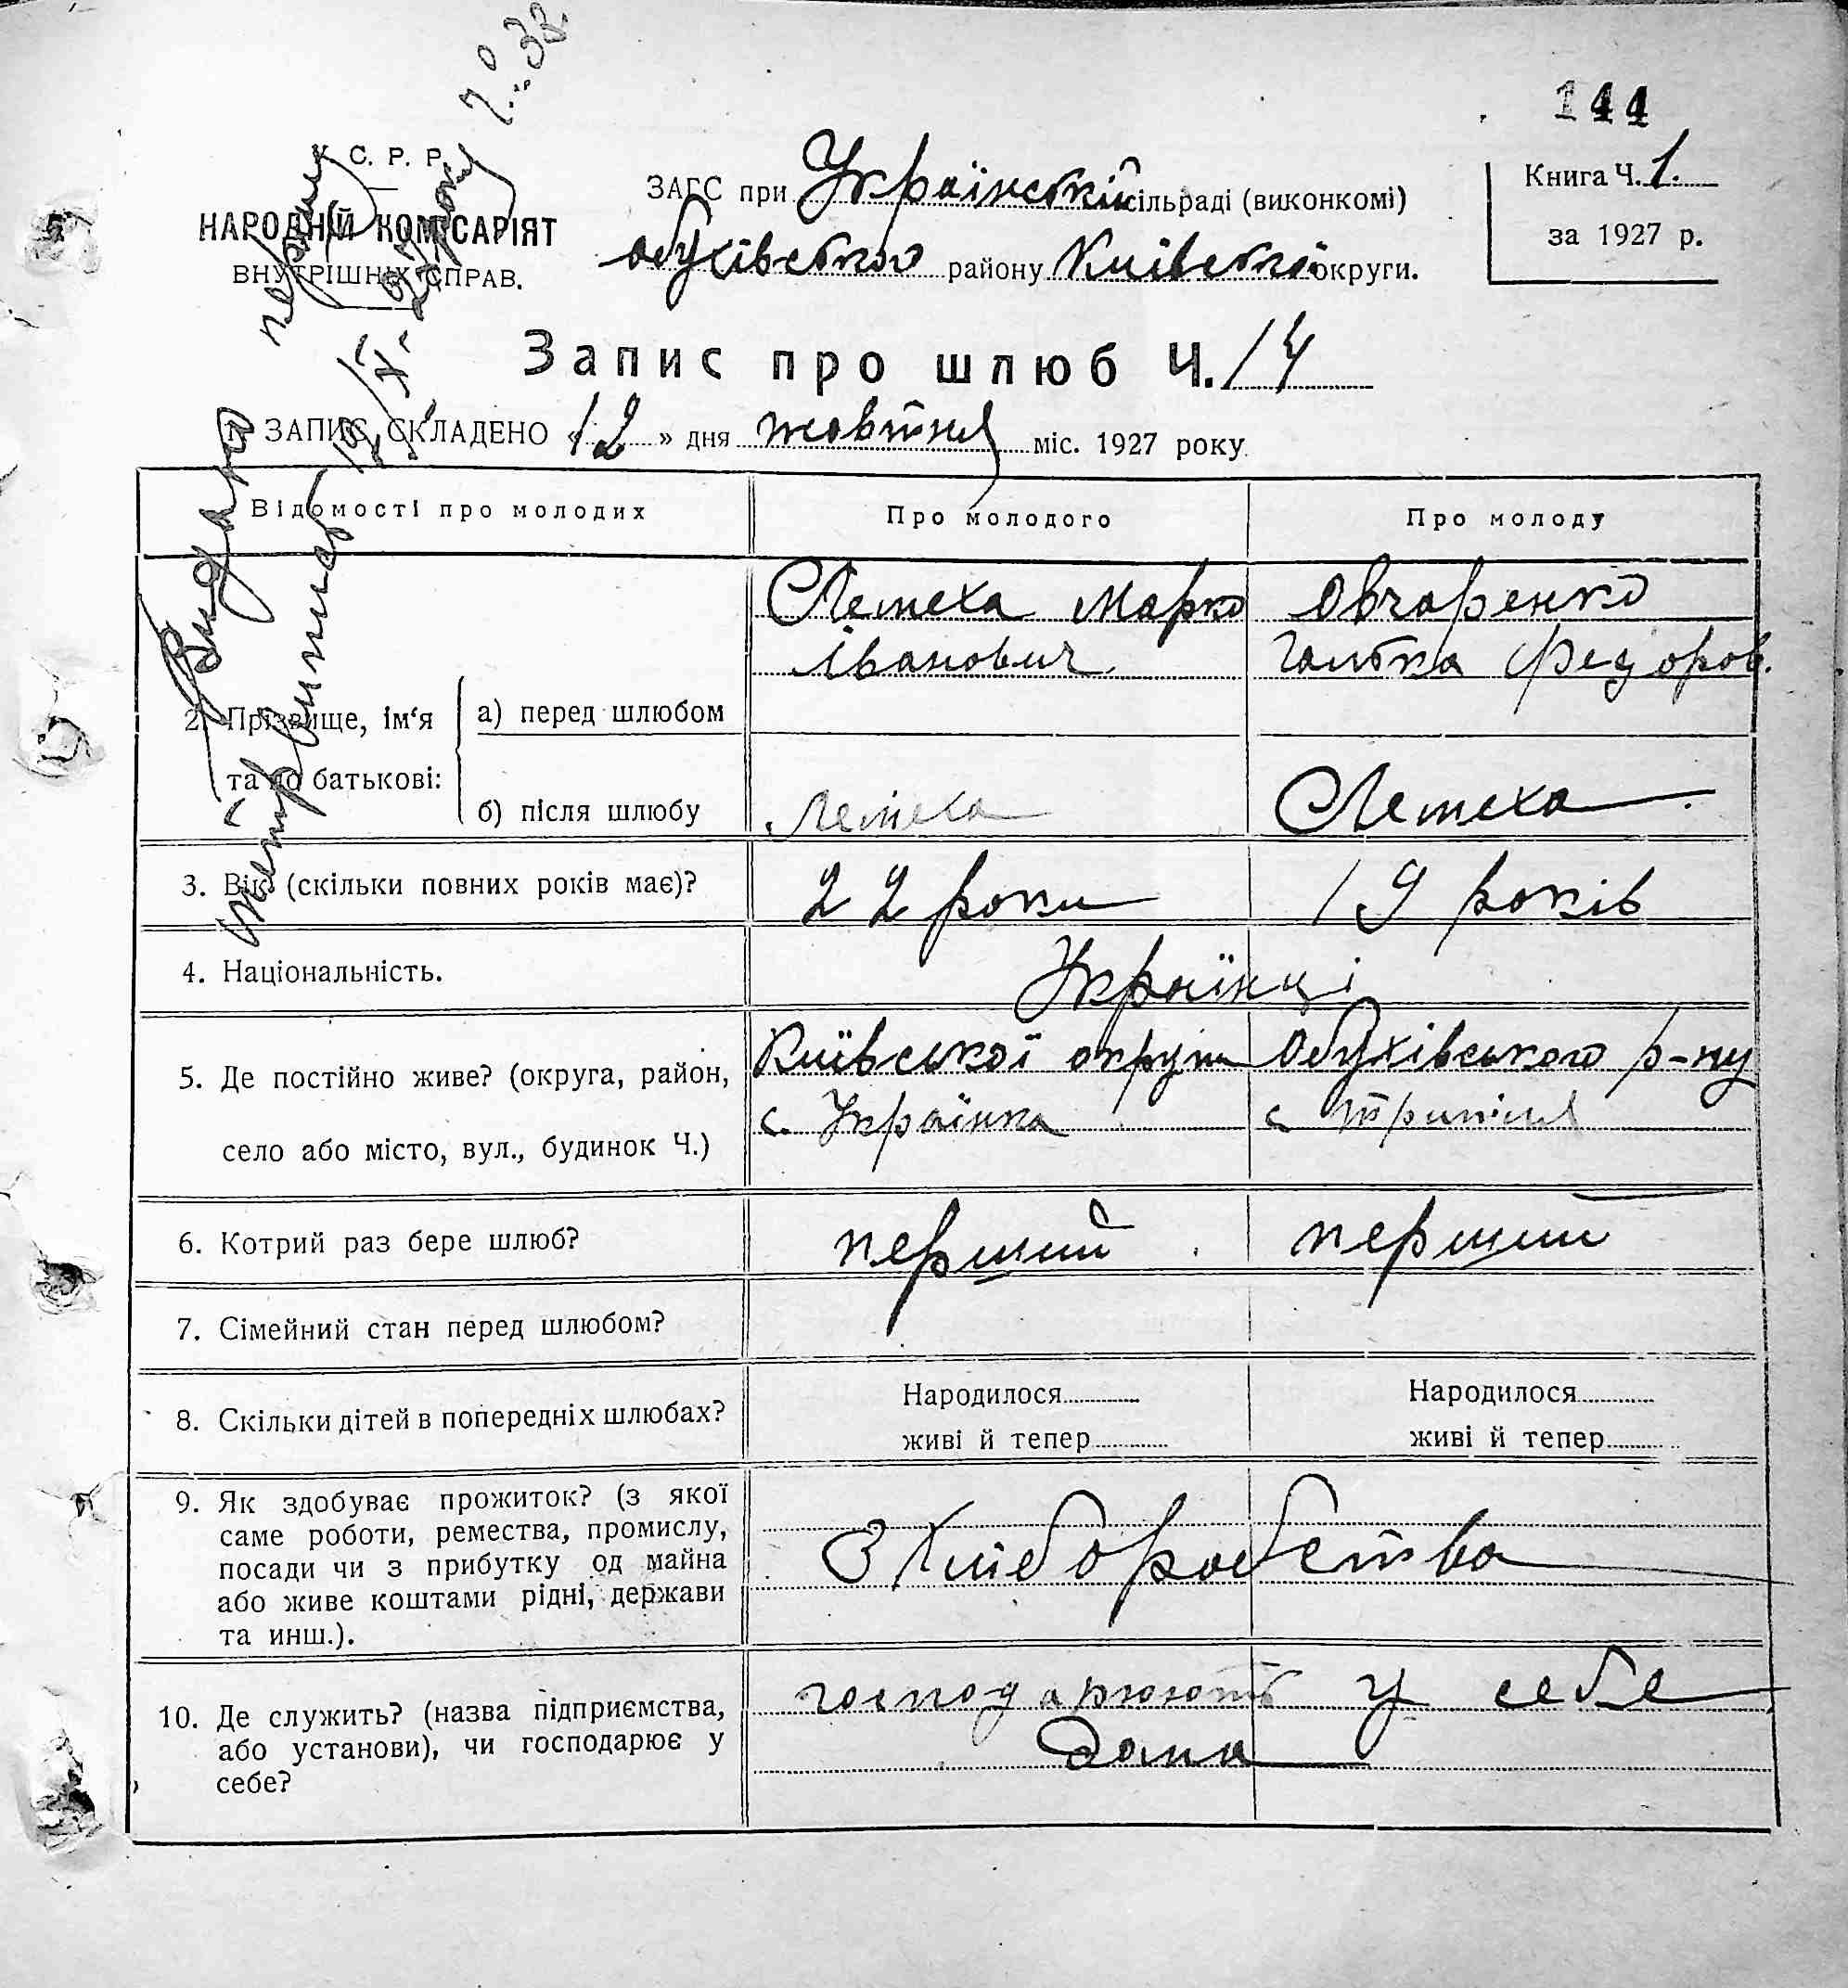 144
У. С. Р. Р.
НАРОДНІЙ КОМІСАРІЯТ
ВНУТРІШНІХ СПРАВ.
ЗАГС при Українській сільраді (виконкомі)
Обухівського району Київської округи.
Книга Ч. 1.
за 1927 р.
Запис про шлюб Ч. 14
1. ЗАПИС СКЛАДЕНО «12» дня жовтня міс. 1927 року.
Видано першу
виписав 12/X-27 року
Відомості про молодих
Про молодого
Про молоду
2. Прізвище, ім‘я
та по батькові:
а) перед шлюбом
Лемеха Марко
Іванович
Овчаренко
Галька Федоров.
б) після шлюбу
Лемеха
Лемеха
3. Вік (скільки повних років має)?
22 роки
19 років
4. Національність.
Українці
5. Де постійно живе? (округа, район,
село або місто, вул., будинок Ч.)
Київської округи Обухівського р-ну
с. Українка
с Трипілля
6. Котрий раз бере шлюб?
перший
перший
7. Сімейний стан перед шлюбом?
8. Скільки дітей в попередніх шлюбах?
Народилося
живі й тепер
Народилося
живі й тепер
9. Як здобуває прожиток? (з якої
саме роботи, ремества, промислу,
посади чи з прибутку од майна
або живе коштами рідні, держави
та инш.).
З Хліборобства
10. Де служить? (назва підприємства,
або установи), чи господарює у
себе?
господарюють у себе
дома